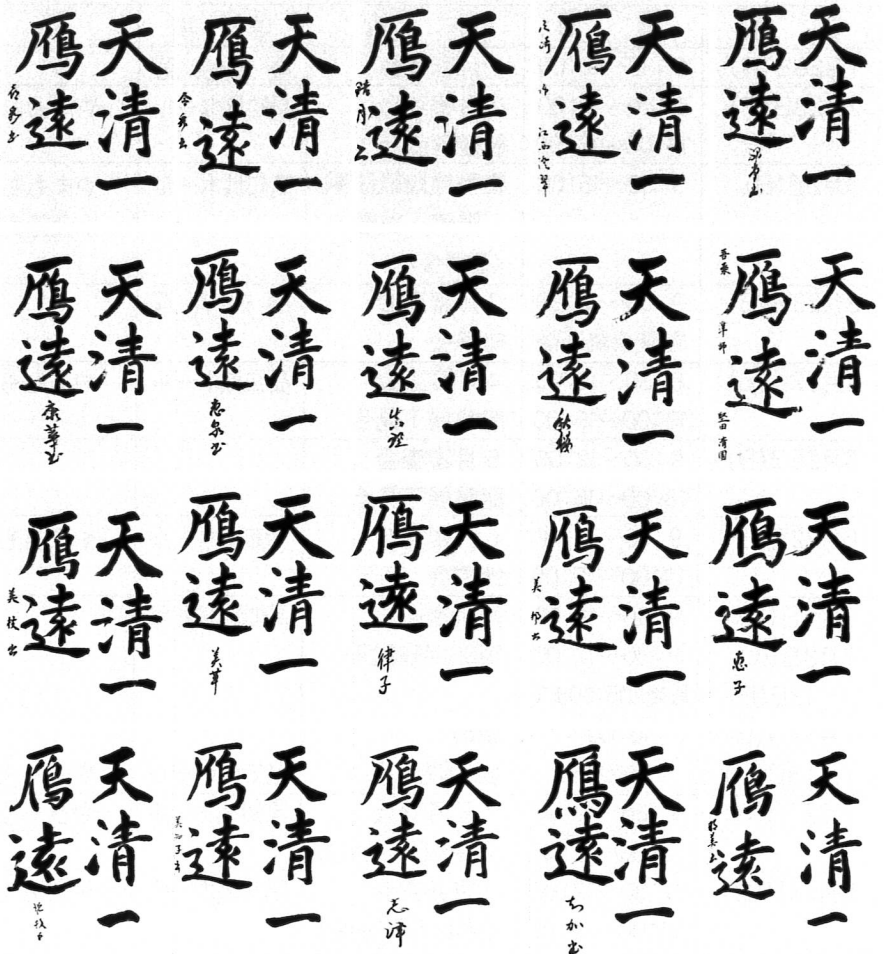 天清一
鴈遠
天清一
鴈遠
天清一
鴈遠
天清一
鴈遠
天清一
鴈遠
天清一
鴈遠
準師
堅田 清園
天清一
鴈遠
天清一
鴈遠
天清一
鴈遠
恵泉書
天清一
鴈遠
康華書
天清一
鴈遠
恵子
天清一
鴈遠
天清一
鴈遠
律子
天清一
鴈遠
美華
天清一
鴈遠
美枝書
天清一
鴈遠
天清一
鴈遠
知加書
天清一
鴈遠
志津
天清一
鴈遠
天清一
鴈遠